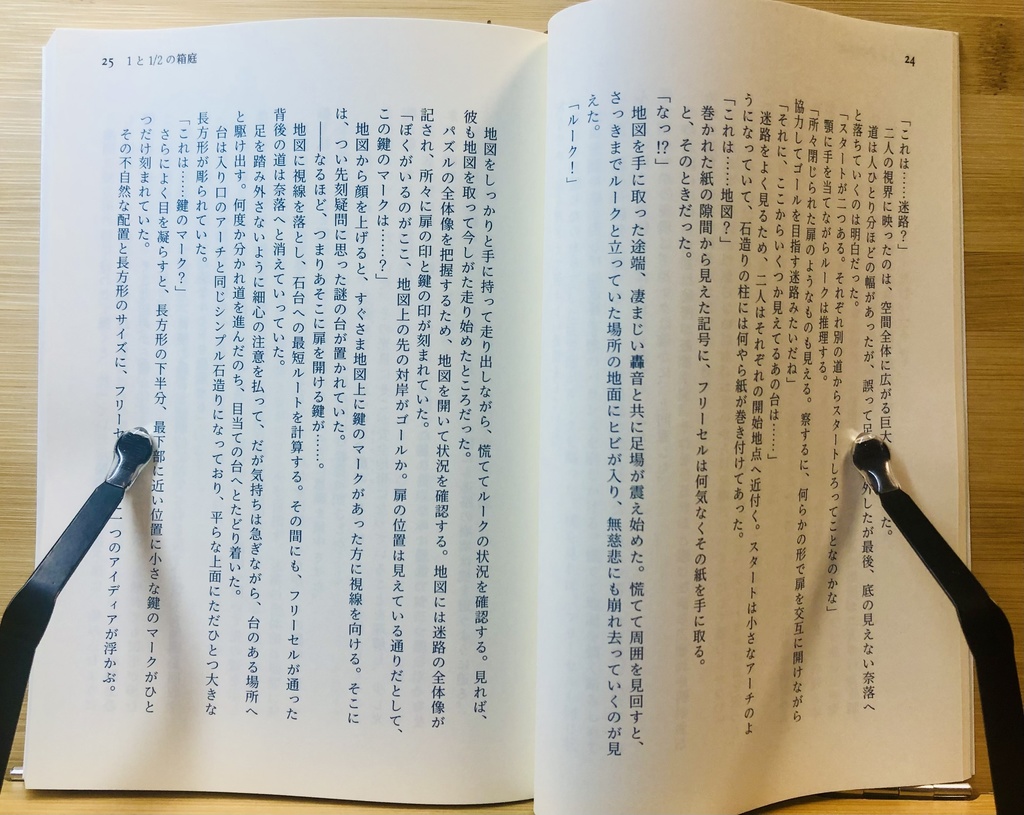 24
「これは……迷路？」
二人の視界に映ったのは、空間全体に広がる巨大 た。
道は人ひとり分ほどの幅があったが、誤って足 外したが最後、底の見えない奈落へ
と落ちていくのは明白だった。
「スタートが二つある。それぞれ別の道からスタートしろってことなのかな」
顎に手を当てながらルークは推理する。
「所々閉じられた扉のようなものも見える。察するに、何らかの形で扉を交互に開けながら
協力してゴールを目指す迷路みたいだね」
「それに、ここからいくつか見えてるあの台は……」
迷路をよく見るため、二人はそれぞれの開始地点へ近付く。スタートは小さなアーチのよ
うになっていて、石造りの柱には何やら紙が巻き付けてあった。
「これは……地図？」
巻かれた紙の隙間から見えた記号に、フリーセルは何気なくその紙を手に取る。
と、そのときだった。
「なっ!?」
地図を手に取った途端、凄まじい轟音と共に足場が震え始めた。慌てて周囲を見回すと、
さっきまでルークと立っていた場所の地面にヒビが入り、無慈悲にも崩れ去っていくのが見
えた。
「ルーク！」
25 1と1/2の箱庭
地図をしっかりと手に持って走り出しながら、慌ててルークの状況を確認する。見れば、
彼も地図を取って今しがた走り始めたところだった。
パズルの全体像を把握するため、地図を開いて状況を確認する。地図には迷路の全体像が
記され、所々に扉の印と鍵の印が刻まれていた。
「ぼくがいるのがここ、地図上の先の対岸がゴールか。扉の位置は見えている通りだとして、
この鍵のマークは……？」
地図から顔を上げると、すぐさま地図上に鍵のマークがあった方に視線を向ける。そこに
は、つい先刻疑問に思った謎の台が置かれていた。
――なるほど、つまりあそこに扉を開ける鍵が……。
地図に視線を落とし、石台への最短ルートを計算する。その間にも、フリーセルが通った
背後の道は奈落へと消えていっていた。
足を踏み外さないように細心の注意を払って、だが気持ちは急ぎながら、台のある場所へ
と駆け出す。何度か分かれ道を進んだのち、目当ての台へとたどり着いた。
台は入り口のアーチと同じシンプル石造りになっており、平らな上面にただひとつ大きな
長方形が彫られていた。
「これは……鍵のマーク？」
さらによく目を凝らすと、長方形の下半分、最下部に近い位置に小さな鍵のマークがひと
つだけ刻まれていた。
その不自然な配置と長方形のサイズに、フリーセ 二つのアイディアが浮かぶ。